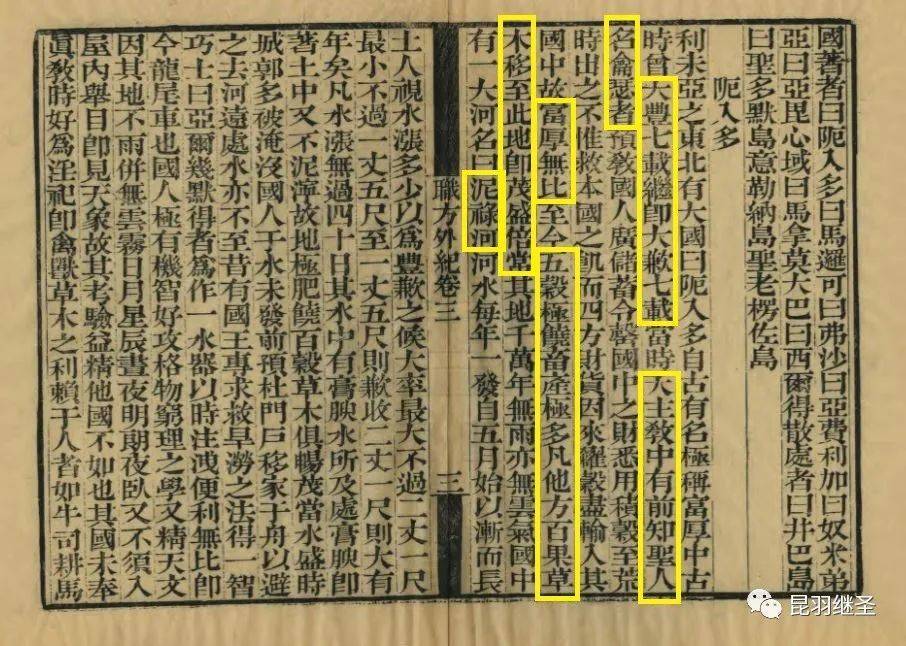 國著者曰阨入多曰馬邏可曰弗沙曰亞費利加曰奴米弟
亞曰亞毘心域曰馬拿莫大巴曰西爾得散處者曰井巴島
曰聖多默島意勒納島聖老楞佐島
阨入多
利未亞之東北有大國曰阨入多自古有名極稱富厚中古
時曾大豐七載繼卽大歉七載當時天主教中有前知聖人
名龠瑟者預教國人廣儲蓄令罄國中之財悉用積穀至荒
時出之不惟救本國之飢而四方財貨因來糴穀盡輸入其
國中故富厚無比至今五穀極饒畜產極多凡他方百果草
木移至此地卽茂盛倍常其地千萬年無雨亦無雲氣國中
有一大河名曰泥祿河河水每年一發自五月始以漸而長
職方外紀卷三
三
土人視水漲多少以爲豐歉之候大率最大不過二丈一尺
最小不過一丈五尺至一丈五尺則歉收二丈一尺則大有
年矣凡水漲無過四十日其水中有膏腴水所及處膏腴卽
著土中又不泥濘故地極肥饒百穀草木俱暢茂當水盛時
城郭多被淹沒國人于水未發前預杜門戶移家于舟以避
之去河遠處水亦不至昔有國王專求救旱澇之法得一智
巧士曰亞爾幾默得者爲作一水器以時注洩便利無比卽
今龍尾車也國人極有機智好攻格物窮理之學又精天文
因其地不雨併無雲霧日月星辰晝夜明朗夜臥又不須入
屋內舉目卽見天象故其考驗益精他國不如也其國未奉
眞教時好爲淫祀卽禽獸草木之利賴于人者如牛司耕馬
昆羽继圣